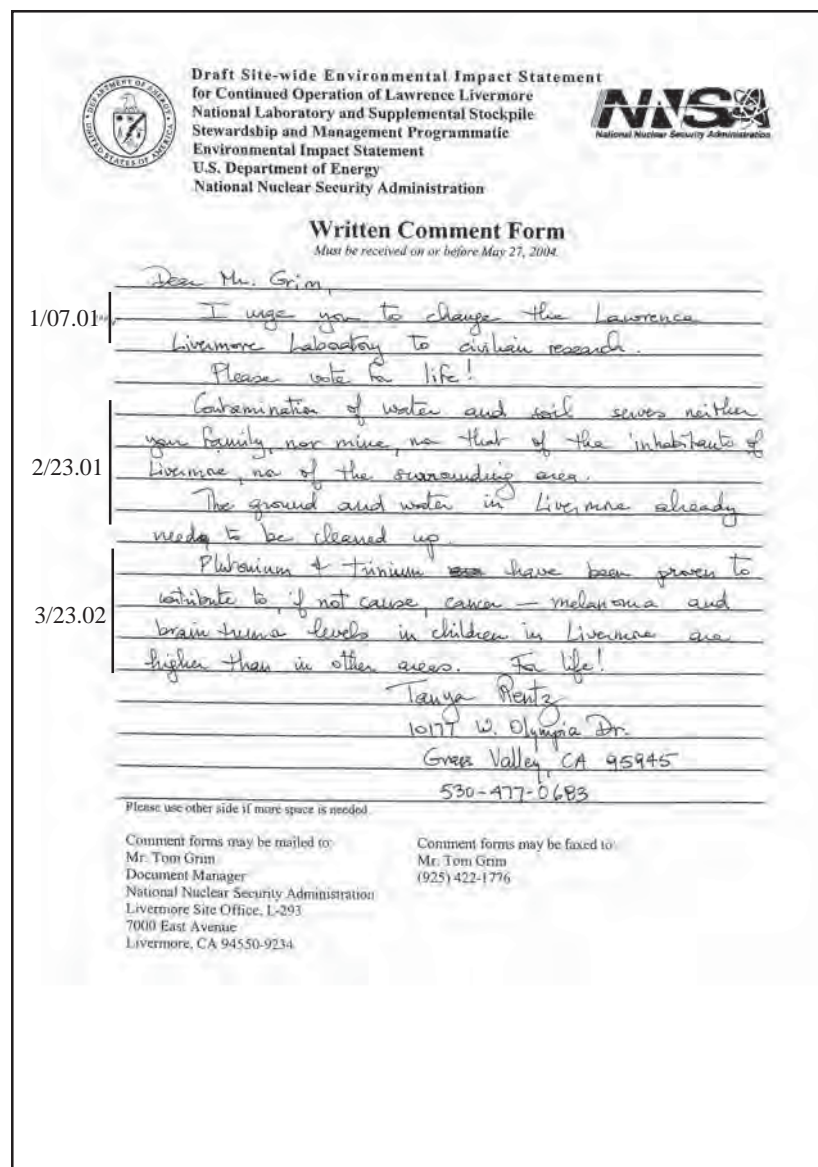 Draft Site-wide Environmental Impact Statement
for Continued Operation of Lawrence Livermore
National Laboratory and Supplemental Stockpile
Stewardship and Management Programmatic
Environmental Impact Statement
U.S. Department of Energy
National Nuclear Security Administration
DEPARTMENT OF ENERGY
UNITED STATES OF AMERICA
NNSA
National Nuclear Security Administration
Written Comment Form
Must be received on or before May 27, 2004.
Dear Mr. Grim,
1/07.01
I urge you to change the Lawrence
Livermore Laboratory to civilian research.
Please vote for life!
2/23.01
Contamination of water and soil serves neither
your family, nor mine, nor that of the inhabitants of
Livermore, nor of the surrounding area.
The ground and water in Livermore already
needs to be cleaned up.
3/23.02
Plutonium & trinium have been proven to
contribute to, if not cause, cancer – melanoma and
brain tumor levels in children in Livermore are
higher than in other areas. For life!
Tanya Rentz
10177 W. Olympia Dr.
Grass Valley, CA 95945
530-477-0683
Please use other side if more space is needed.
Comment forms may be mailed to:
Mr. Tom Grim
Document Manager
National Nuclear Security Administration
Livermore Site Office, L-293
7000 East Avenue
Livermore, CA 94550-9234
Comment forms may be faxed to:
Mr. Tom Grim
(925) 422-1776